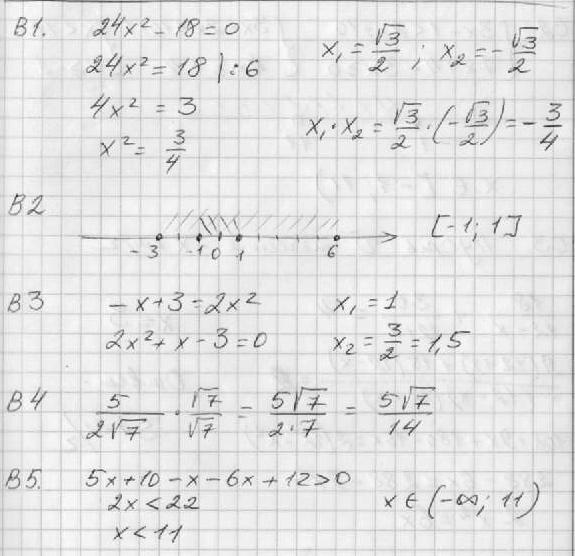 B1. 24x² - 18 = 0
24x² = 18 | : 6
4x² = 3
x² = 3/4
x₁ = √3/2 ; x₂ = -√3/2
x₁ · x₂ = √3/2 · (-√3/2) = -3/4
B2
-3 -1 0 1 6
[-1; 1]
B3 -x + 3 = 2x²
2x² + x - 3 = 0
x₁ = 1
x₂ = 3/2 = 1,5
B4 5/2√7 · √7/√7 = 5√7/2·7 = 5√7/14
B5. 5x + 10 - x - 6x + 12 > 0
2x < 22
x < 11
x ∈ (-∞; 11)